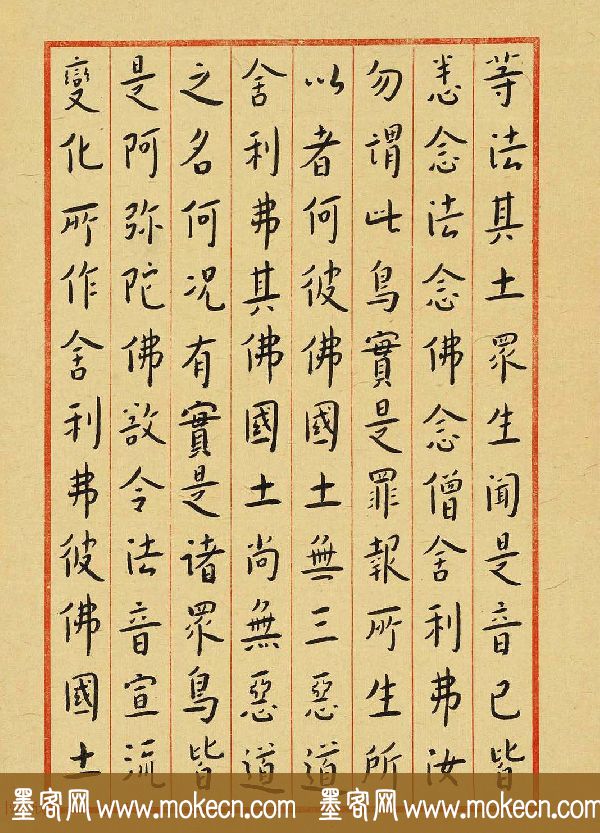 等法其土眾生聞是音已皆
悉念法念佛念僧舍利弗汝
勿謂此鳥實是罪報所生所
以者何彼佛國土無三惡道
舍利弗其佛國土尚無惡道
之名何况有實是諸眾鳥皆
是阿弥陀佛欲令法音宣流
變化所作舍利弗彼佛國土
墨客网 www.mokecn.com 墨客网 www.mokecn.com